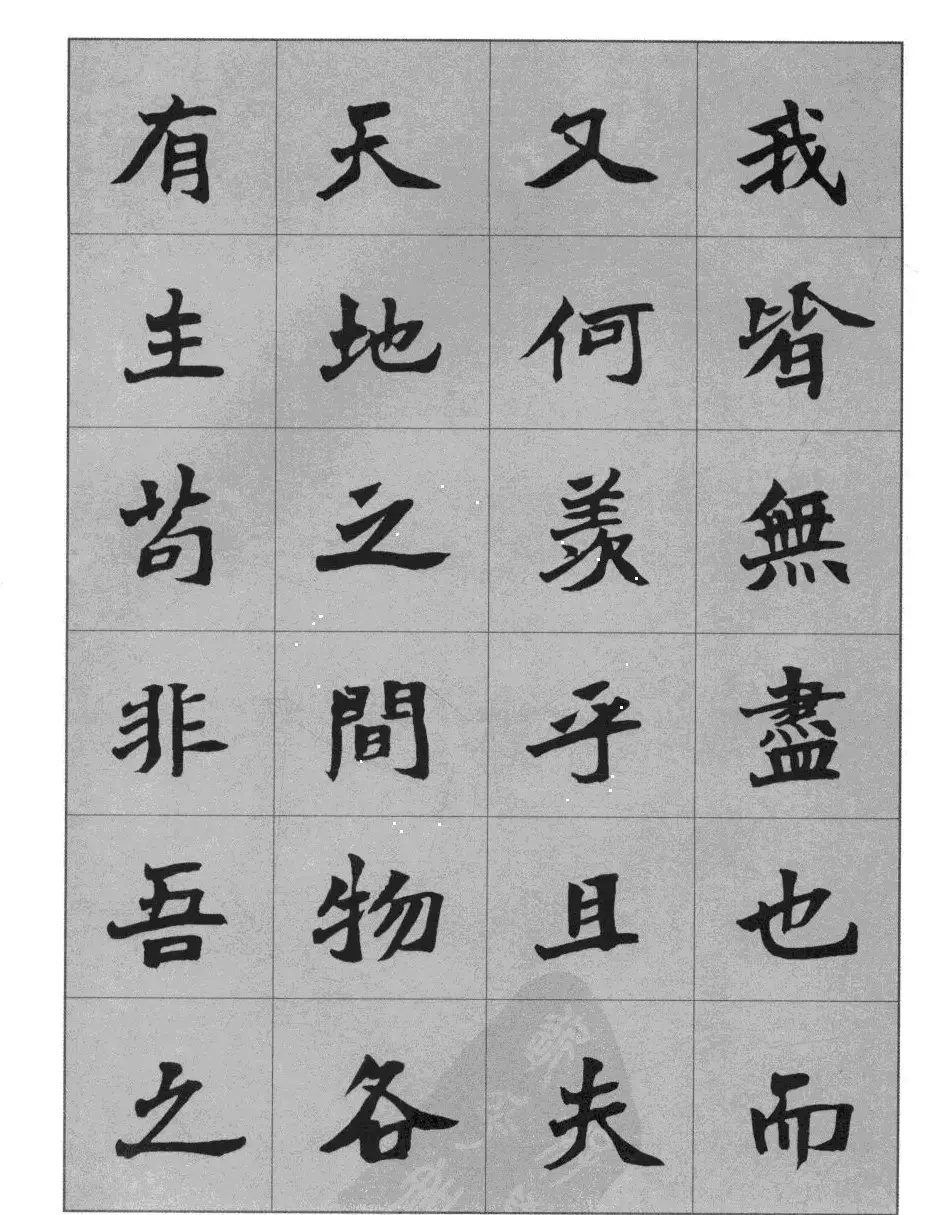 我皆無盡也而
又何羨乎且夫
天地之間物各
有主苟非吾之